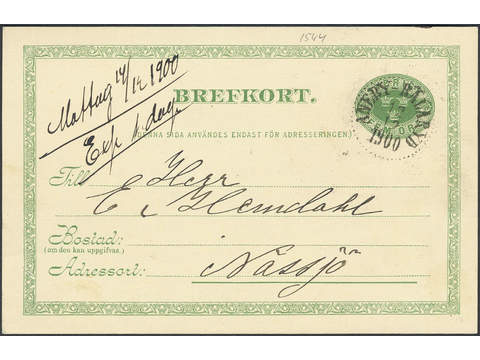 1544
Mottag 14/12 1900
Exp s. dag.
BREFKORT.
(DENNA SIDA ANVÄNDES ENDAST FÖR ADRESSERINGEN.)
1900
Till Herr
E. Hemdahl
Bostad:
(om den kan uppgifvas.)
Adressort: Nässjö